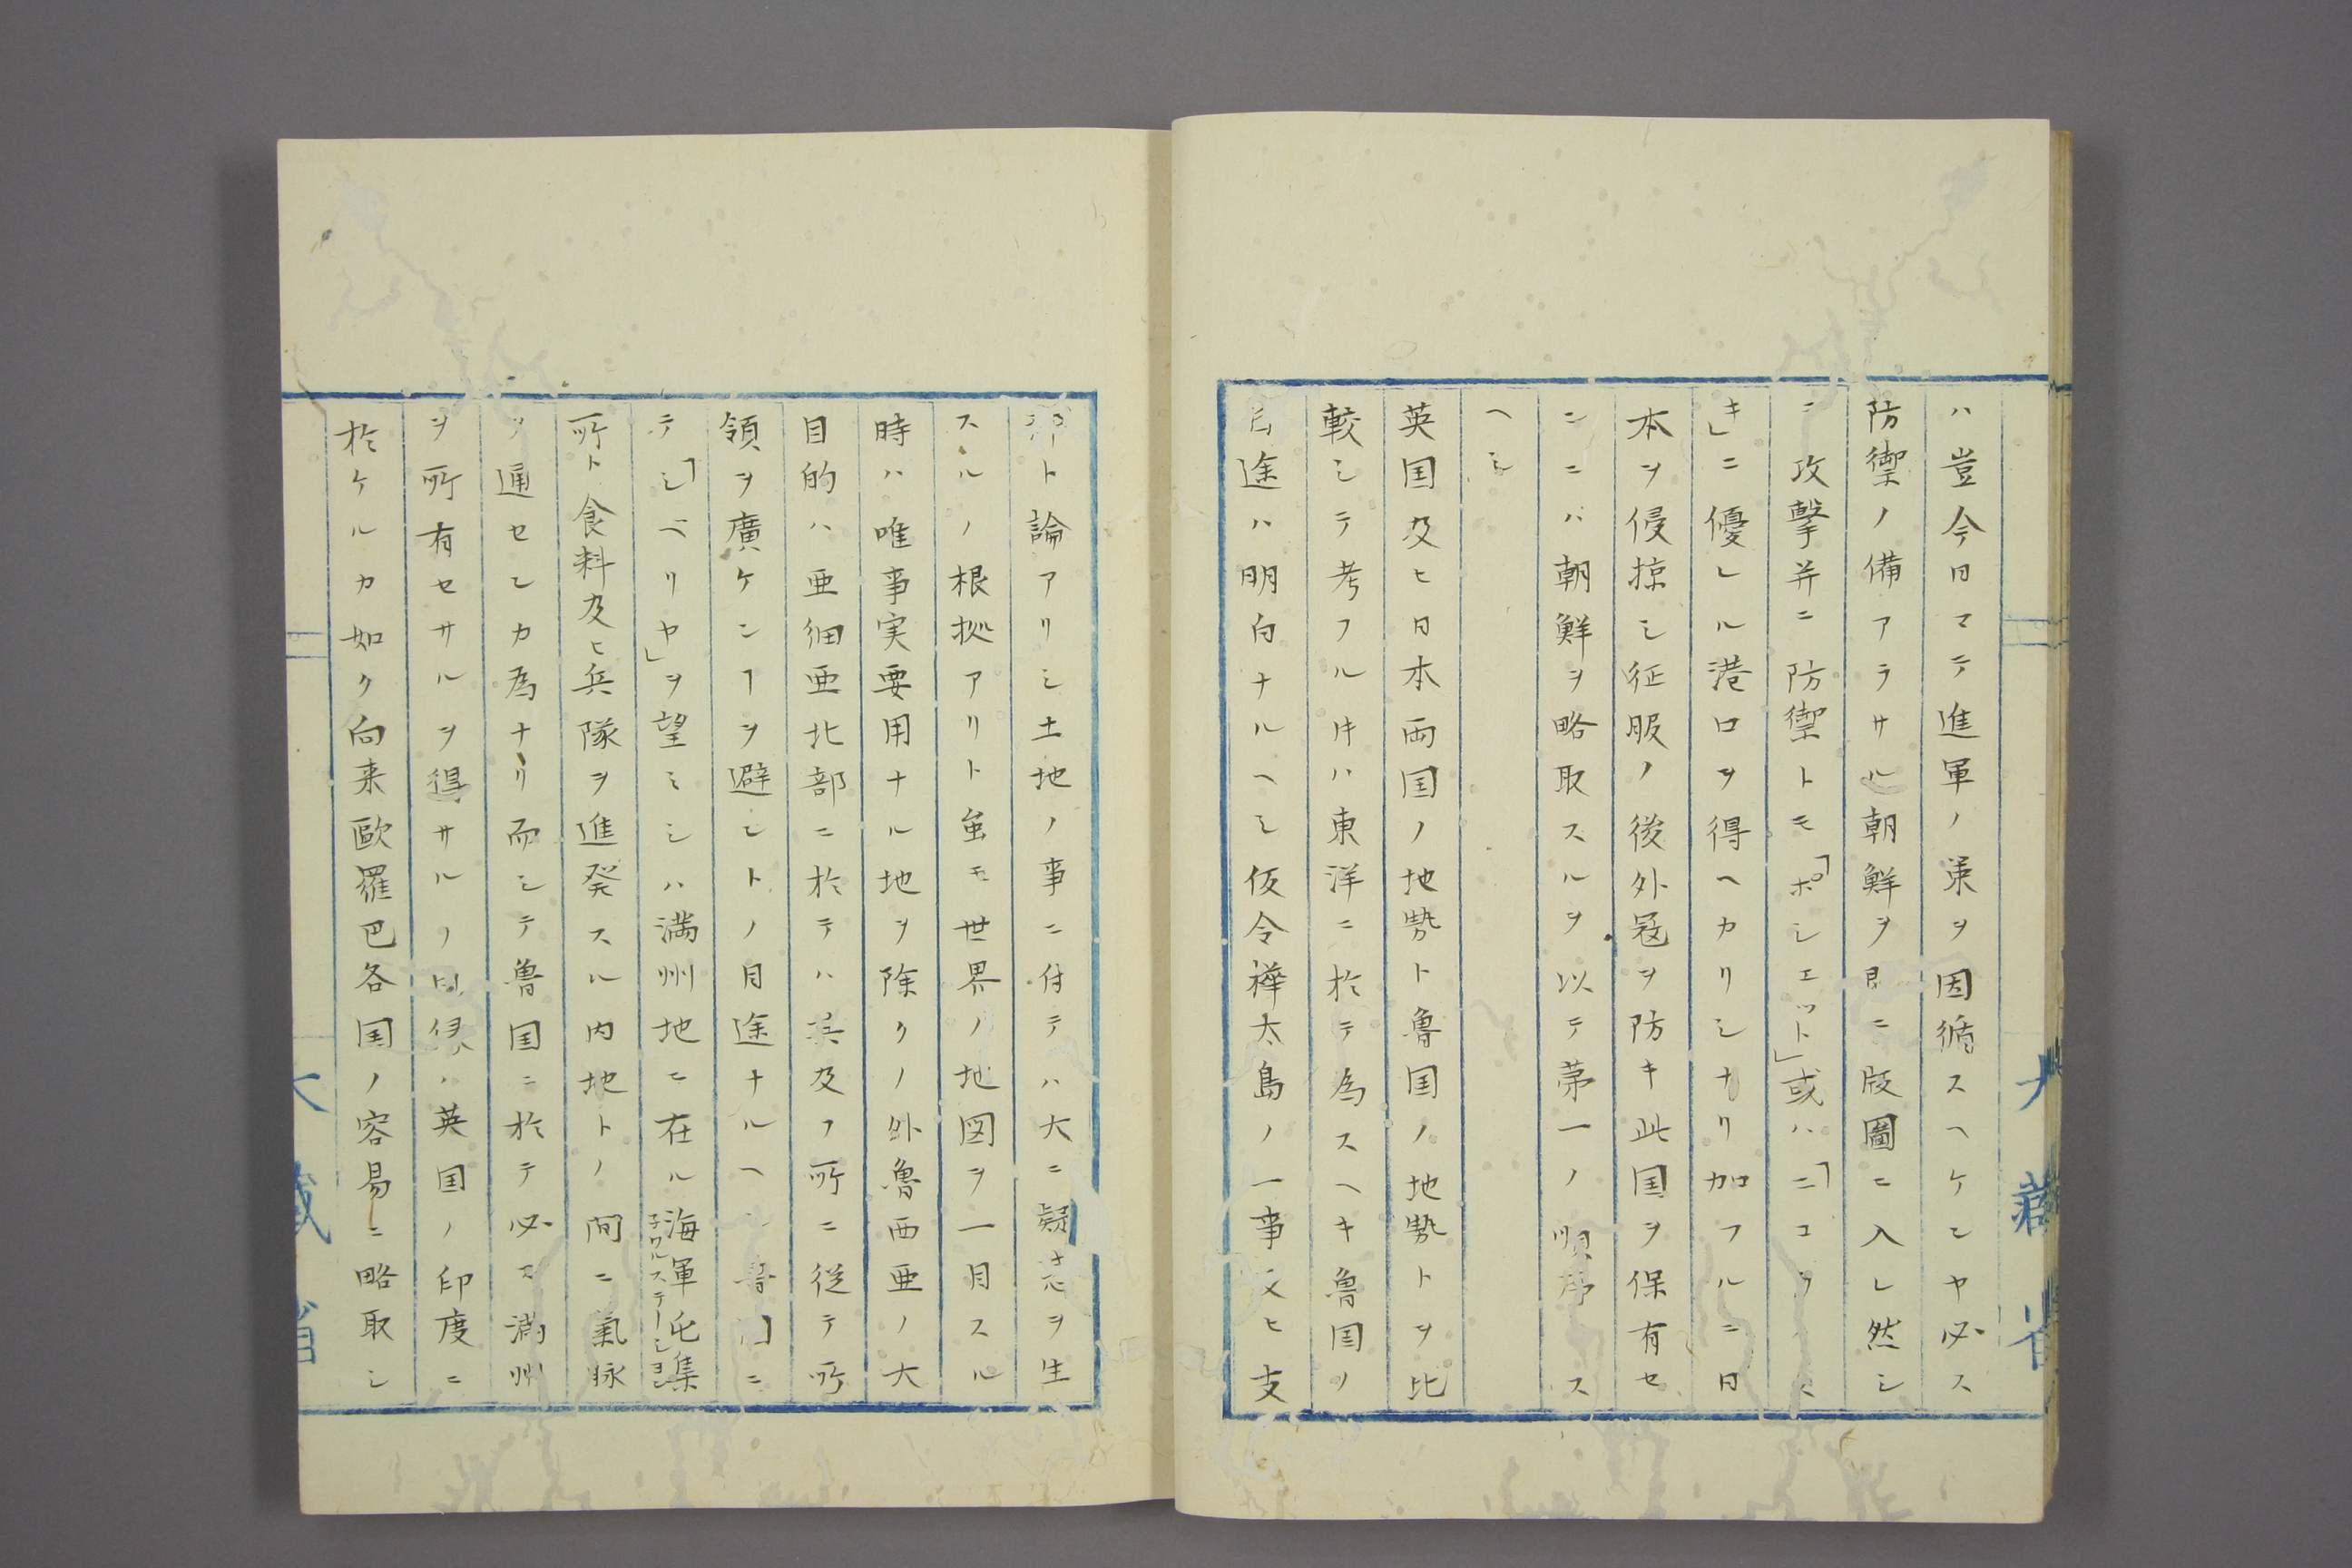 ハ豈今日マテ進軍ノ策ヲ因循スヘケンヤ必ス
防禦ノ備アラサル朝鮮ヲ即ニ版圖ニ入レ然シ
ニ攻撃并ニ防禦トモ「ポシエット」或ハ「ニコラ
キ」ニ優レル港口ヲ得ヘカリシナリ加フルニ日
本ヲ侵掠シ征服ノ後外寇ヲ防キ此国ヲ保有セ
ンニハ朝鮮ヲ略取スルヲ以テ第一ノ順序ス
ヘシ
英国及ヒ日本両国ノ地勢ト魯国ノ地勢トヲ比
較シテ考フルキハ東洋ニ於テ為スヘキ魯国ノ
目途ハ明白ナルヘシ仮令樺太島ノ一事及ヒ支
ト論アリシ土地ノ事ニ付テハ大ニ疑ヲ生
スルノ根拠アリト虽モ世界ノ地図ヲ一目スル
時ハ唯事実要用ナル地ヲ除クノ外魯西亜ノ大
目的ハ亜細亜北部ニ於テハ兵及フ所ニ従テ所
領ヲ廣ケンヿヲ避ントノ目途ナルヘシ魯国ニ
テ「シベリヤ」ヲ望ミシハ満州地ニ在ル海軍屯集
子ワルステーション
所ト食料及ヒ兵隊ヲ進発スル内地トノ間ニ氣脉
ヲ通センカ為ナリ而シテ魯国ニ於テ必ス満州
ヲ所有セサルヲ得サルノ英国ノ印度ニ
於ケルカ如ク向来歐羅巴各国ノ容易ニ略取シ
大藏省
大藏省